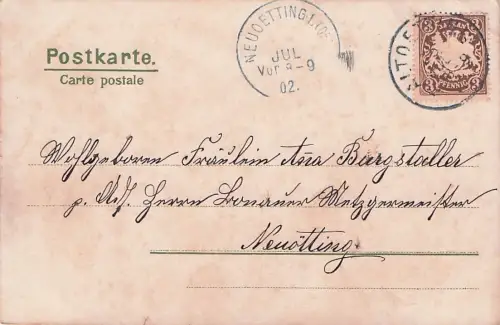 Postkarte.
Carte postale
NEUOETTING
JUL
Vor 8-9
02.
3 BAYERN 3
3 PFENNIG 3
Wohlgeboren Fräulein Ana Burgstaller
p. Ad. Herrn Lonauer Metzgermeister
Neuötting.